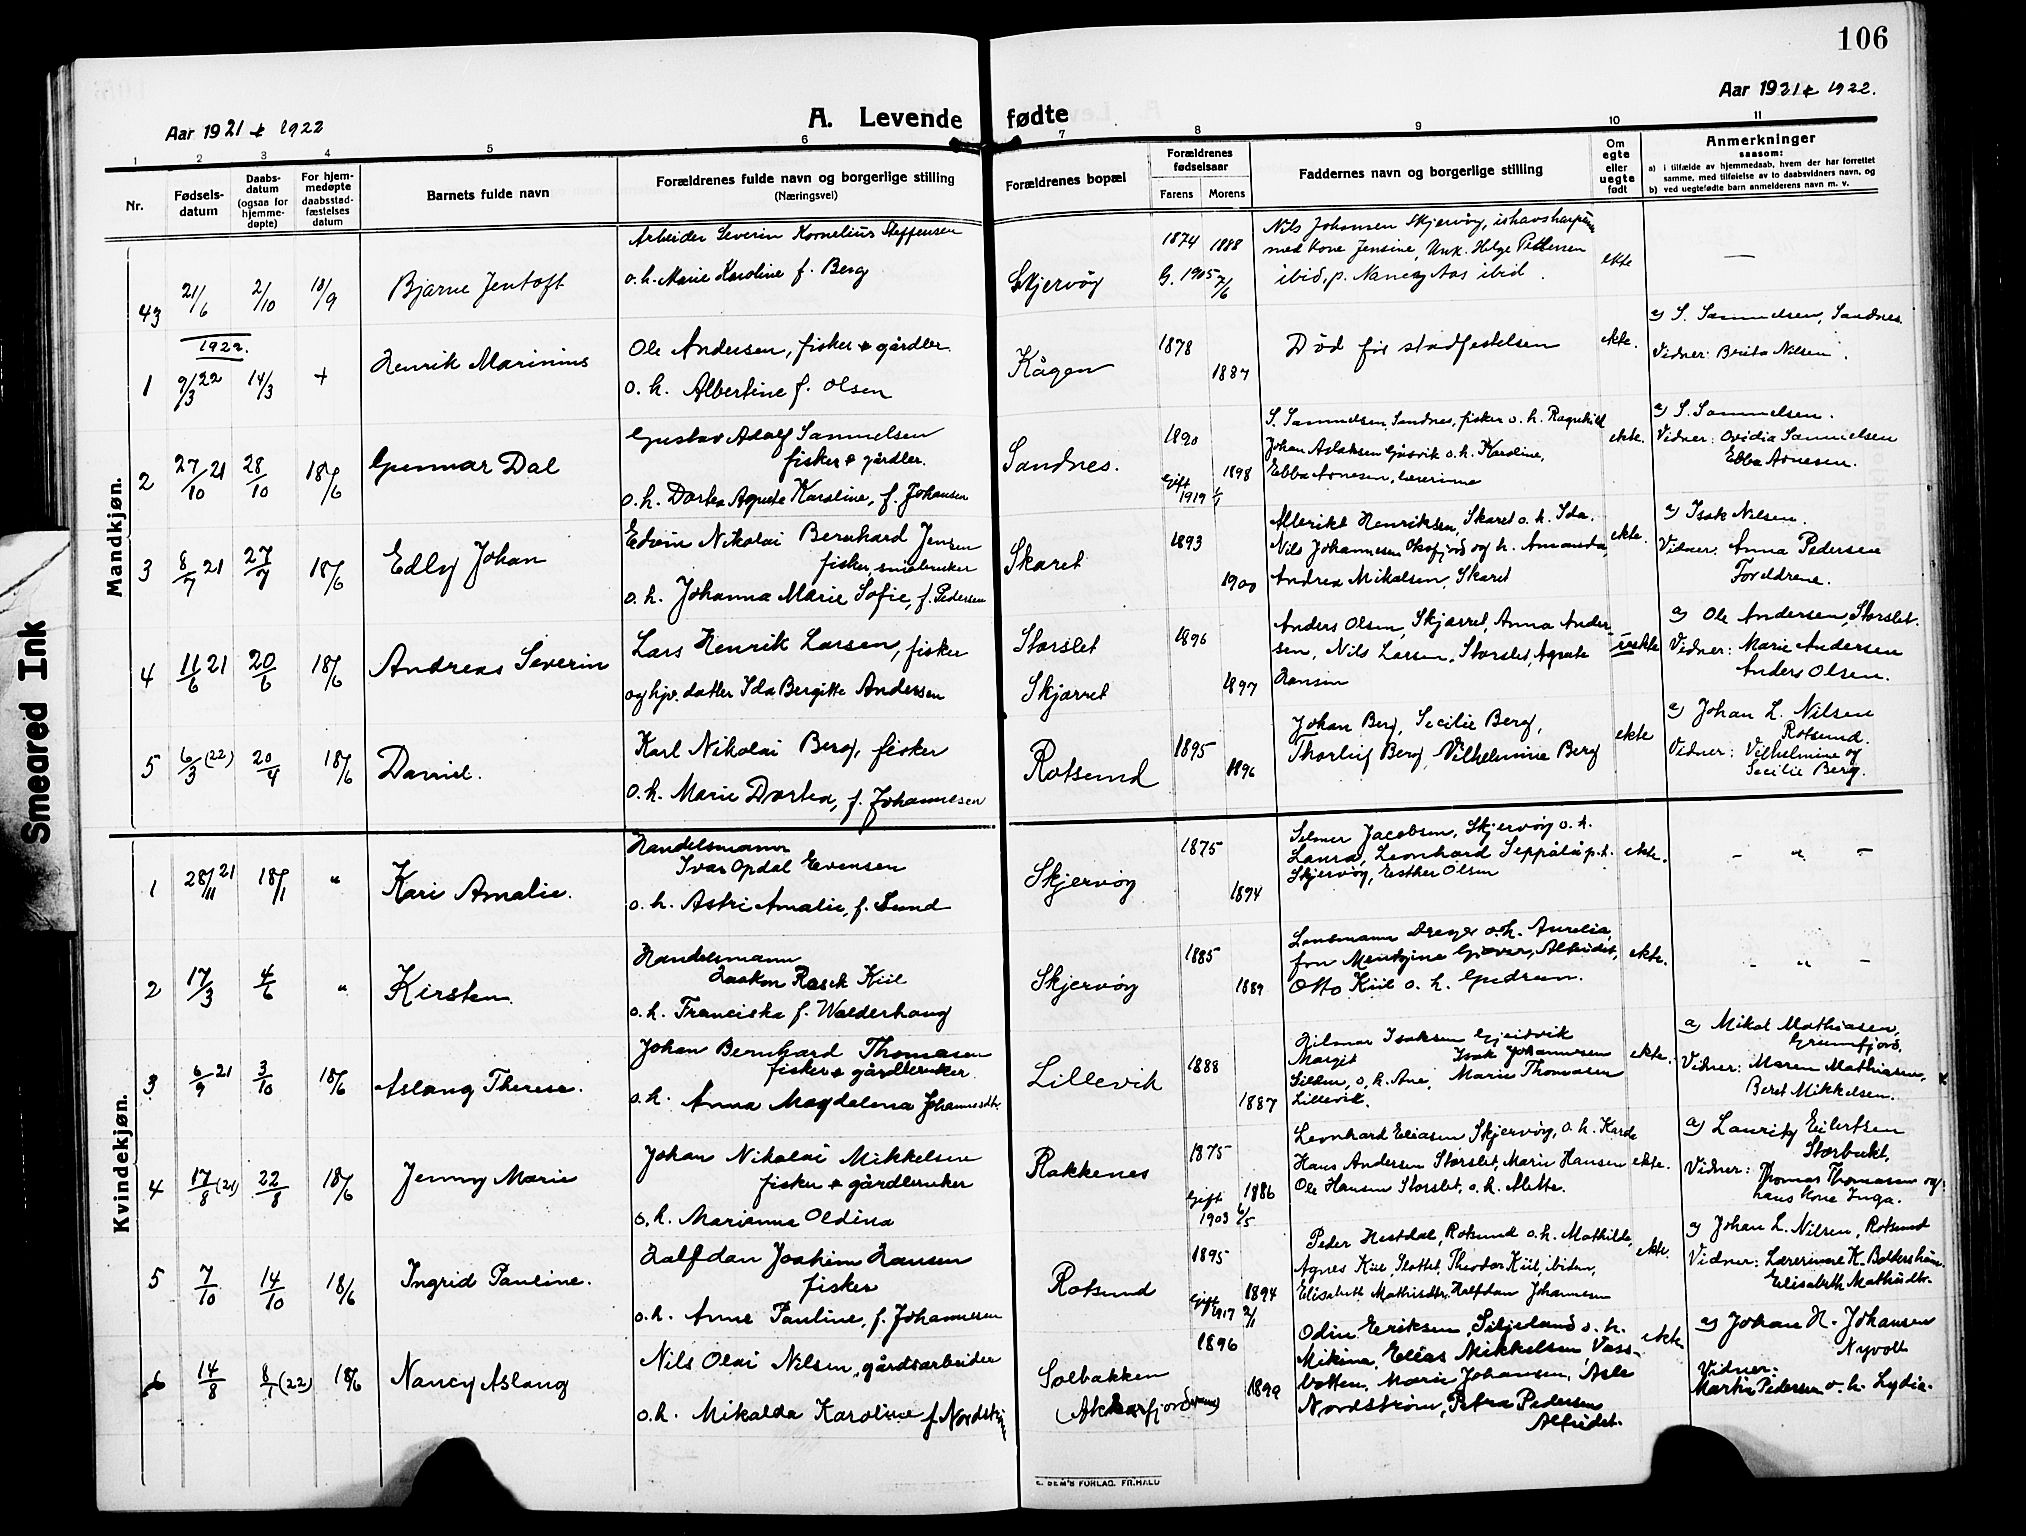 106
Aar 1921 & 1922
A. Levende fødte
Aar 1921 & 1922.
1 2 3 4 5 6 7 8 9 10 11
Nr.
Fødsels-
datum
Daabs-
datum
(ogsaa for
hjemme-
døpte)
For hjem-
medøpte
daabsstad-
fæstelses
datum
Barnets fulde navn
Forældrenes fulde navn og borgerlige stilling
(Næringsvei)
Forældrenes bopæl
Forældrenes
fødselsaar
Farens Morens
Faddernes navn og borgerlige stilling
Om
egte
eller
uegte
født
Anmerkninger
saasom:
a) i tilfælde av hjemmedaab, hvem der har forrettet
samme, med tilføielse av to daabsvidners navn, og
b) ved uegtefødte barn anmelderens navn m. v.
Mandkjøn.
43 21/6 2/10 18/9 Bjarne Jentoft
Arbeider Severin Kornelius Steffensen
o. h. Marie Karoline f. Berg
Skjervøy
1874 1888
G. 1905 7/6
Nils Johansen Skjervøy,
med kone Jensine, Unk. Helge Pettersen
ibid, p. Nancy Aas ibid.
ekte
—
1922.
1 9/3 22 14/3 + Henrik Marinius
Ole Andersen, fisker & gårdbr.
o. h. Albertine f. Olsen
Kågen
1878
1887
Død før stadfestelsen
ekte.
a) S. Samuelsen, Sandnes.
Vidner: Berita Nilsen.
2 27/10 21 28/10 18/6 Gunnar Dal
Gustav Adolf Samuelsen
fisker & gårdbr.
o. h. Dortea Agnete Karoline, f. Johansen
Sandnes.
1890
1898
Gift
1919
S. Samuelsen, Sandnes, fisker o. h. Ragnhild
Johan Aslaksen Gåsvik o. h. Karoline,
Ebba Arnesen, lærerinne
ekte.
a) S. Samuelsen.
Vidner: Ovidia Samuelsen
Ebba Arnesen.
3 8/7 21 27/7 18/6 Edly Johan
Edvin Nikolai Bernhard Jensen
fisker, småbruker
o. h. Johanna Marie Sofie, f. Pedersen
Skaret
1893
1900
Henriksen, Skaret o. h. Ida.
Nils Johannesen Oksfjord og h. Amanda,
Andrea Mikalsen, Skaret
ekte.
a) Isak Nilsen.
Vidner: Anna Pedersen
Foreldrene.
4 11/6 21 20/6 18/6 Andreas Severin
Lars Henrik Larsen, fisker
og hjv. datter Ida Bergitte Andersen
Storslet
Skjærret
1896
1897
Anders Olsen, Skjærret, Anna Ander-
sen, Nils Larsen, Storslet, Agnete
Hansen
uekte
a) Ole Andersen, Storslet.
Vidner: Marie Andersen
Anders Olsen.
5 6/3 (22) 20/4 18/6 Daniel.
Karl Nikolai Berg, fisker
o. h. Marie Dortea, f. Johannesen
Rotsund
1895
1896
Johan Berg, Secilie Berg,
Thorleif Berg, Vilhelmine Berg
ekte
a) Johan L. Nilsen
Rotsund.
Vidner: Vilhelmine og
Secilie Berg.
Kvindekjøn.
1 28/11 21 18/1 " Kari Amalie.
Handelsmann
Ivar Opdal Evensen
o. h. Astri Amalie, f. Lund
Skjervøy
1875
1894
Selmer Jacobsen, Skjervøy o. h.
Laura, Leonhard Seppälä p. t.
Skjervøy, Esther Olsen
ekte.
— " —
2 17/3 4/6 " Kirsten
Handelsmann
Haakon Rasch Kiil
o. h. Franciska f. Walderhaug
Skjervøy
1885
1889
Lensmann Dreyer o. h. Aurelia,
Giæver,
Otto Kiil o. h. Gudrun.
ekte.
— " —
3 6/9 21 3/10 18/6 Aslaug Therese.
Johan Bernhard Thomasen
fisker & gårdbruker.
o. h. Anna Magdalena Johannesdtr.
Lillevik
1888
1887
Hilmar Isaksen Gjeitvik
Margit Isak Johannesen
o. h. Ane, Marie Thomasen
Lillevik.
ekte.
a) Mikal Mathiasen,
Grunfjord.
Vidner: Maren Mathiasen,
Beret Mikkelsen.
4 17/8 (21) 22/8 18/6 Jenny Marie
Johan Nikolai Mikkelsen
fisker & gårdbruker
o. h. Marianna Oldina
Rakkenes
1875
1886
Gift
1903 6/5
Leonhard Eliasen Skjervøy, o. h. Karda
Hans Andersen Storslet, Marie Hansen
Ole Hansen Storslet, o. h. Alette.
ekte.
a) Lauritz Eilertsen
Storbukt.
Vidner: Thomas Thomasen og
hans kone Inga.
5 7/10 14/10 18/6 Ingrid Pauline.
Halfdan Joakim Hansen
fisker
o. h. Anne Pauline, f. Johannesen
Rotsund
1895
1894
Gift
1917 2/1
Peder Hestdal, Rotsund o. h. Mathilde,
Agnes Kiil, Slottet, Theodor Kiil, ibidem,
Elisabeth Mathisdtr. Halfdan Johannesen
ekte.
a) Johan L. Nilsen, Rotsund
Vidner: Lærerinne K.
Elisabeth Mathisdtr.
6 14/8 8/1 (22) 18/6 Nancy Aslaug
Nils Olai Nilsen, gårdsarbeider
o. h. Mikalda Karoline f. Nordstrøm
Solbakken
1896
1899
Odin Eriksen, Siljeland o. h.
Mikina, Elias Mikkelsen Vass-
botten, Marie Johansen,
Nordstrøm, Petra Pedersen
ekte
a) Johan H. Johansen
Nyvoll
Vidner:
Martin Pedersen o. h. Lydia.
E. SEM'S FORLAG. FR.HALD
Smeared Ink